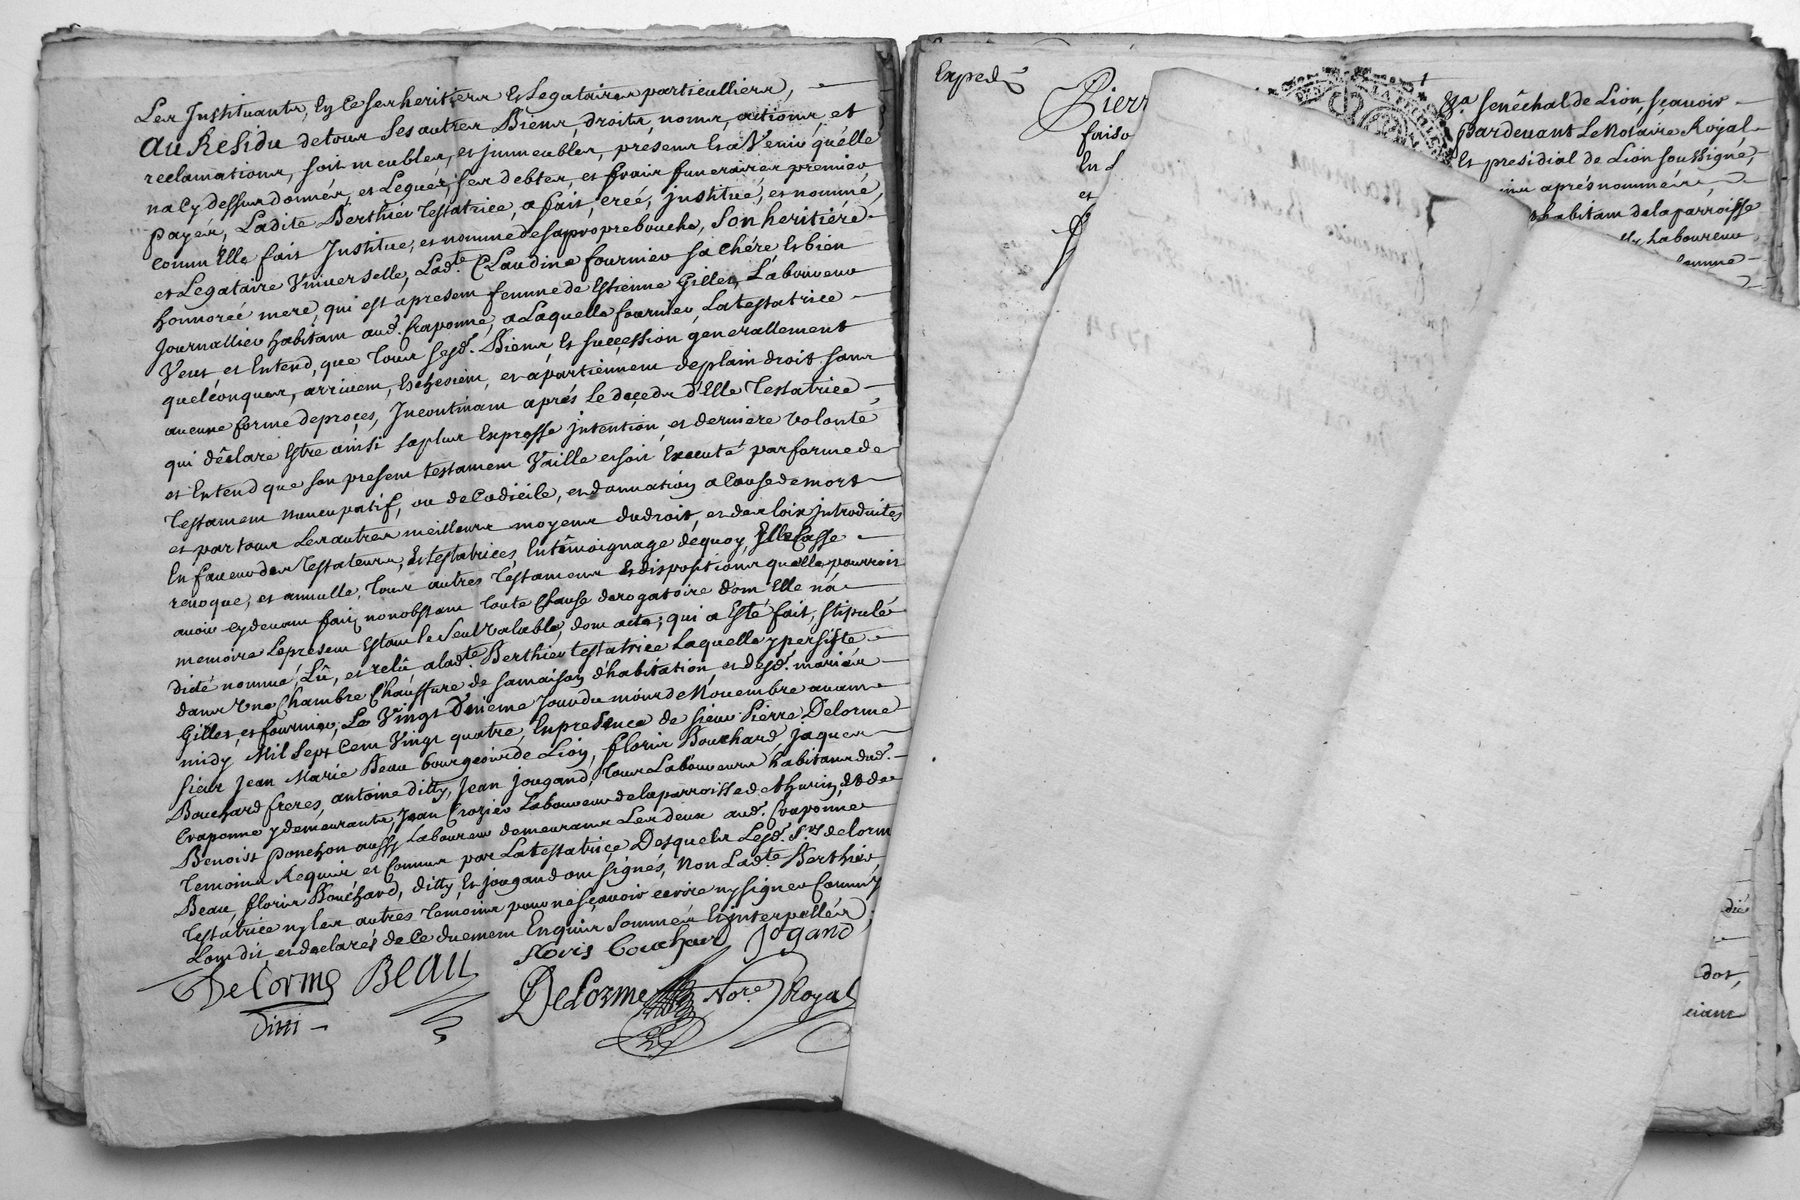 Les Instituants, En Ce Ses heritiers Et Legataires particulliers,
Au Residu de tous Ses autres Biens, droits, noms, actions, et
reclamations, soit meubles, et immeubles, presens Et a Venir qu'elle
na Cy dessus donnés, et Legués, ses debtes, et frais funeraires premier
payés, Ladite Berthier Testatrice, a fait, creé, institué, et nommé,
comm'Elle fait Institue, et nomme de sa propre bouche, Son heritiére
et Legataire Universelle, Lad.te Claudine fournier sa chére Et bien
honnoreé mere, qui est apresent femme de Estienne Gilles, Laboureur
Journallier habitant aud.t Craponne, a Laquelle fournier, La testatrice
Veut et Entend, que Tous sesd.t Biens Et succession generallement
quelconques, arrivent, Escheoient, et apartiennent de plain droit sans
aucune forme de proçes, Incontinant aprés Le deçeds d'Elle Testatrice
qui déclare Estre ainsi sa plus Expresse intention, et derniere volonté
et Entend que son present testament Vaille et soit Executé par forme de
Testament nuncupatif, ou de Codicile, et donnation a Cause de mort
et par tous Les autres meilleurs moyens du droit, et des loix introduites
En faveur des Testateurs, Et testatrices, En témoignage dequoy, Elle Casse
revoque, et annulle, Tous autres Testaments Et dispositions qu'elle pourroit
avoir cy devant fait, nonobstant toute Clause derogatoire dont Elle n'a
memoire Le present Estant le seul valable, dont acte; qui a Esté fait, stipulé
dicté nommé, Lû, et relû a lad.te Berthier testatrice Laquelle y persiste
dans Une Chambre Chauffure de sa maison d'habitation, et desd.t mariés
Gilles, et fournier, Le Vingt Unieme Jour du mois de Novembre avant
midy Mil Sept Cent Vingt quatre, En presence de sieur Pierre Delorme
sieur Jean Marie Beau bourgeois de Lion, floris Bouchard, Jaques
Bouchard freres, antoine ditty, Jean Jougand, Tous Laboureurs habitans dud.t
Craponne y demeurants, Jean Crozier Laboureur de la parroisse de
Benoist Ponchon aussy Laboureur demeurants Les deux aud.t Craponne
Temoins Requis et Connus par La testatrice Desquels Lesd.t S.rs delorme
Beau, floris Bouchard, ditty, Et jougand ont signés, Non Lad.te Berthier
Testatrice ny les autres Temoins pour ne sçavoir ecrire ny signer Comm'ils
L'ont dit, et declarés de Ce duement Enquis Sommés Et interpellés;
De Lorme BEAU floris bouchar Jogand
ditti DeLorme Nor.e Royal
Exped.
Pierr
faiso
En L
et
sénéchal de Lion, sçavoir
Pardevant Le Notaire Royal
Et presidial de Lion soussigné,
aprés nommés,
habitant de la parroisse
Laboureur
femme
dot,